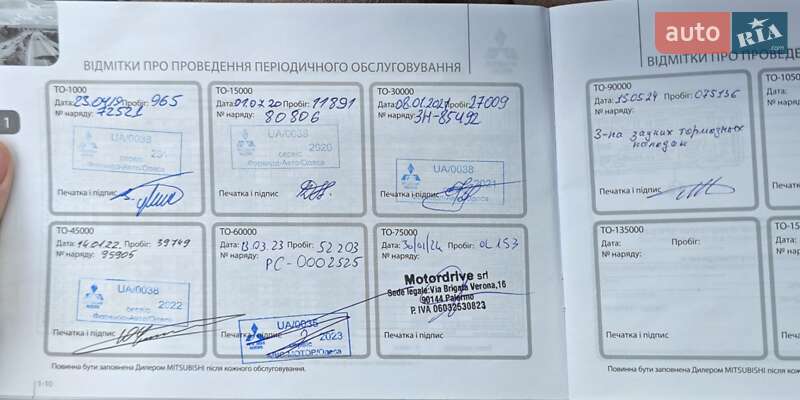 auto RIA.com
ВІДМІТКИ ПРО ПРОВЕДЕННЯ ПЕРІОДИЧНОГО ОБСЛУГОВУВАННЯ
ТО-1000
Дата: 23.04.19 Пробіг: 965
№ наряду: 72521
UA/0038
сервіс
Форвард-Авто/Одеса
Печатка і підпис
ТО-15000
Дата: 01.07.20 Пробіг: 11891
№ наряду: 80806
UA/0038
2020
сервіс
Форвард-Авто/Одеса
Печатка і підпис
ТО-30000
Дата: 08.01.2021 Пробіг: 27009
№ наряду: ЗН-85492
UA/0038
2021
Печатка і підпис
ТО-45000
Дата: 14.01.22. Пробіг: 39749
№ наряду: 95905
UA/0038
2022
сервіс
Форвард-Авто/Одеса
Печатка і підпис
ТО-60000
Дата: 13.03.23 Пробіг: 52203
№ наряду: РС-0002525
UA/0038
2023
Печатка і підпис
ТО-75000
Дата: 30/01/24 Пробіг:
№ наряду:
Motordrive srl
Sede legale:Via Brigata Verona,16
90144 Palermo
P. IVA 06032530823
Печатка і підпис
Повинна бути заповнена Дилером MITSUBISHI після кожного обслуговування.
1-10
1
ВІДМІТКИ ПРО ПРОВЕДЕ
ТО-90000
Дата: 15.05.24 Пробіг: 075136
№ наряду:
З-на задних тормозных
колодок
Печатка і підпис
ТО-1050
Дата:
№ на
Печатк
ТО-135000
Дата: Пробіг:
№ наряду:
Печатка і підпис
ТО-15
Дата:
№ на
Печат
Повинна бути заповнена Дилером MITSUBISHI після кож